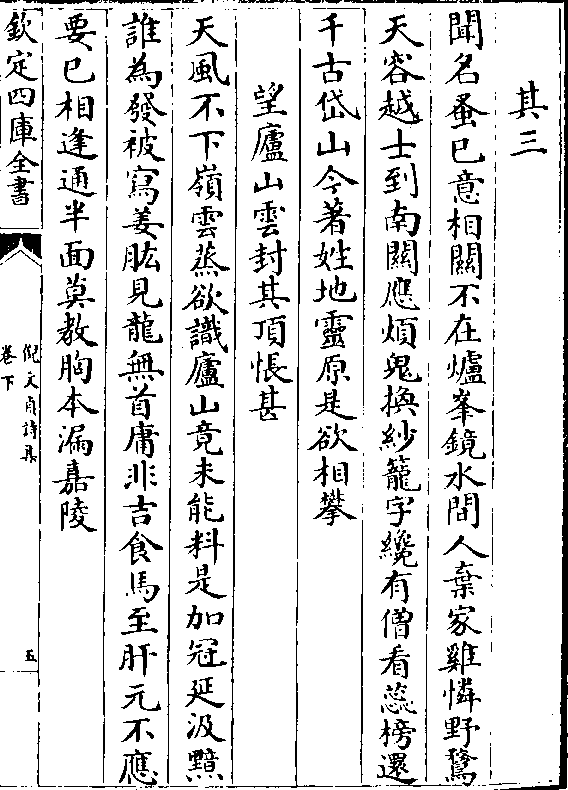 其三
聞名蚤已意相關不在爐峯鏡水間人棄家雞憐野騖
天容越士到南關應煩鬼換紗籠字纔有僧看蕊榜還
千古岱山今著姓地靈原是欲相攀
望廬山雲封其頂悵甚
天風不下嶺雲蒸欲識廬山竟未能料是加冠延汲黯
誰為發被寫姜肱見龍無首庸非吉食馬至肝元不應
要已相逢通半面莫教胸本漏嘉陵
欽定四庫全書
倪文貞詩集
卷下
五